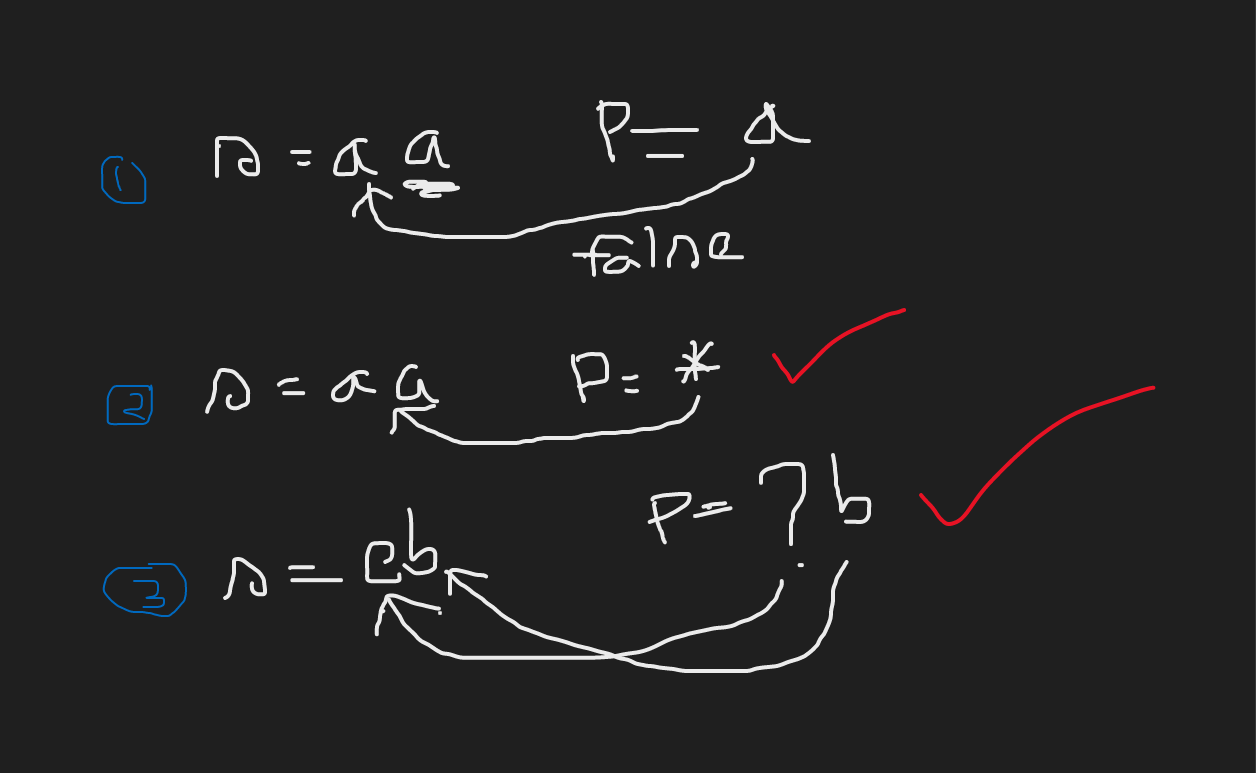 ① s = a a P = a
false
2 s = a a P = *
P = ? b
③ s = cb